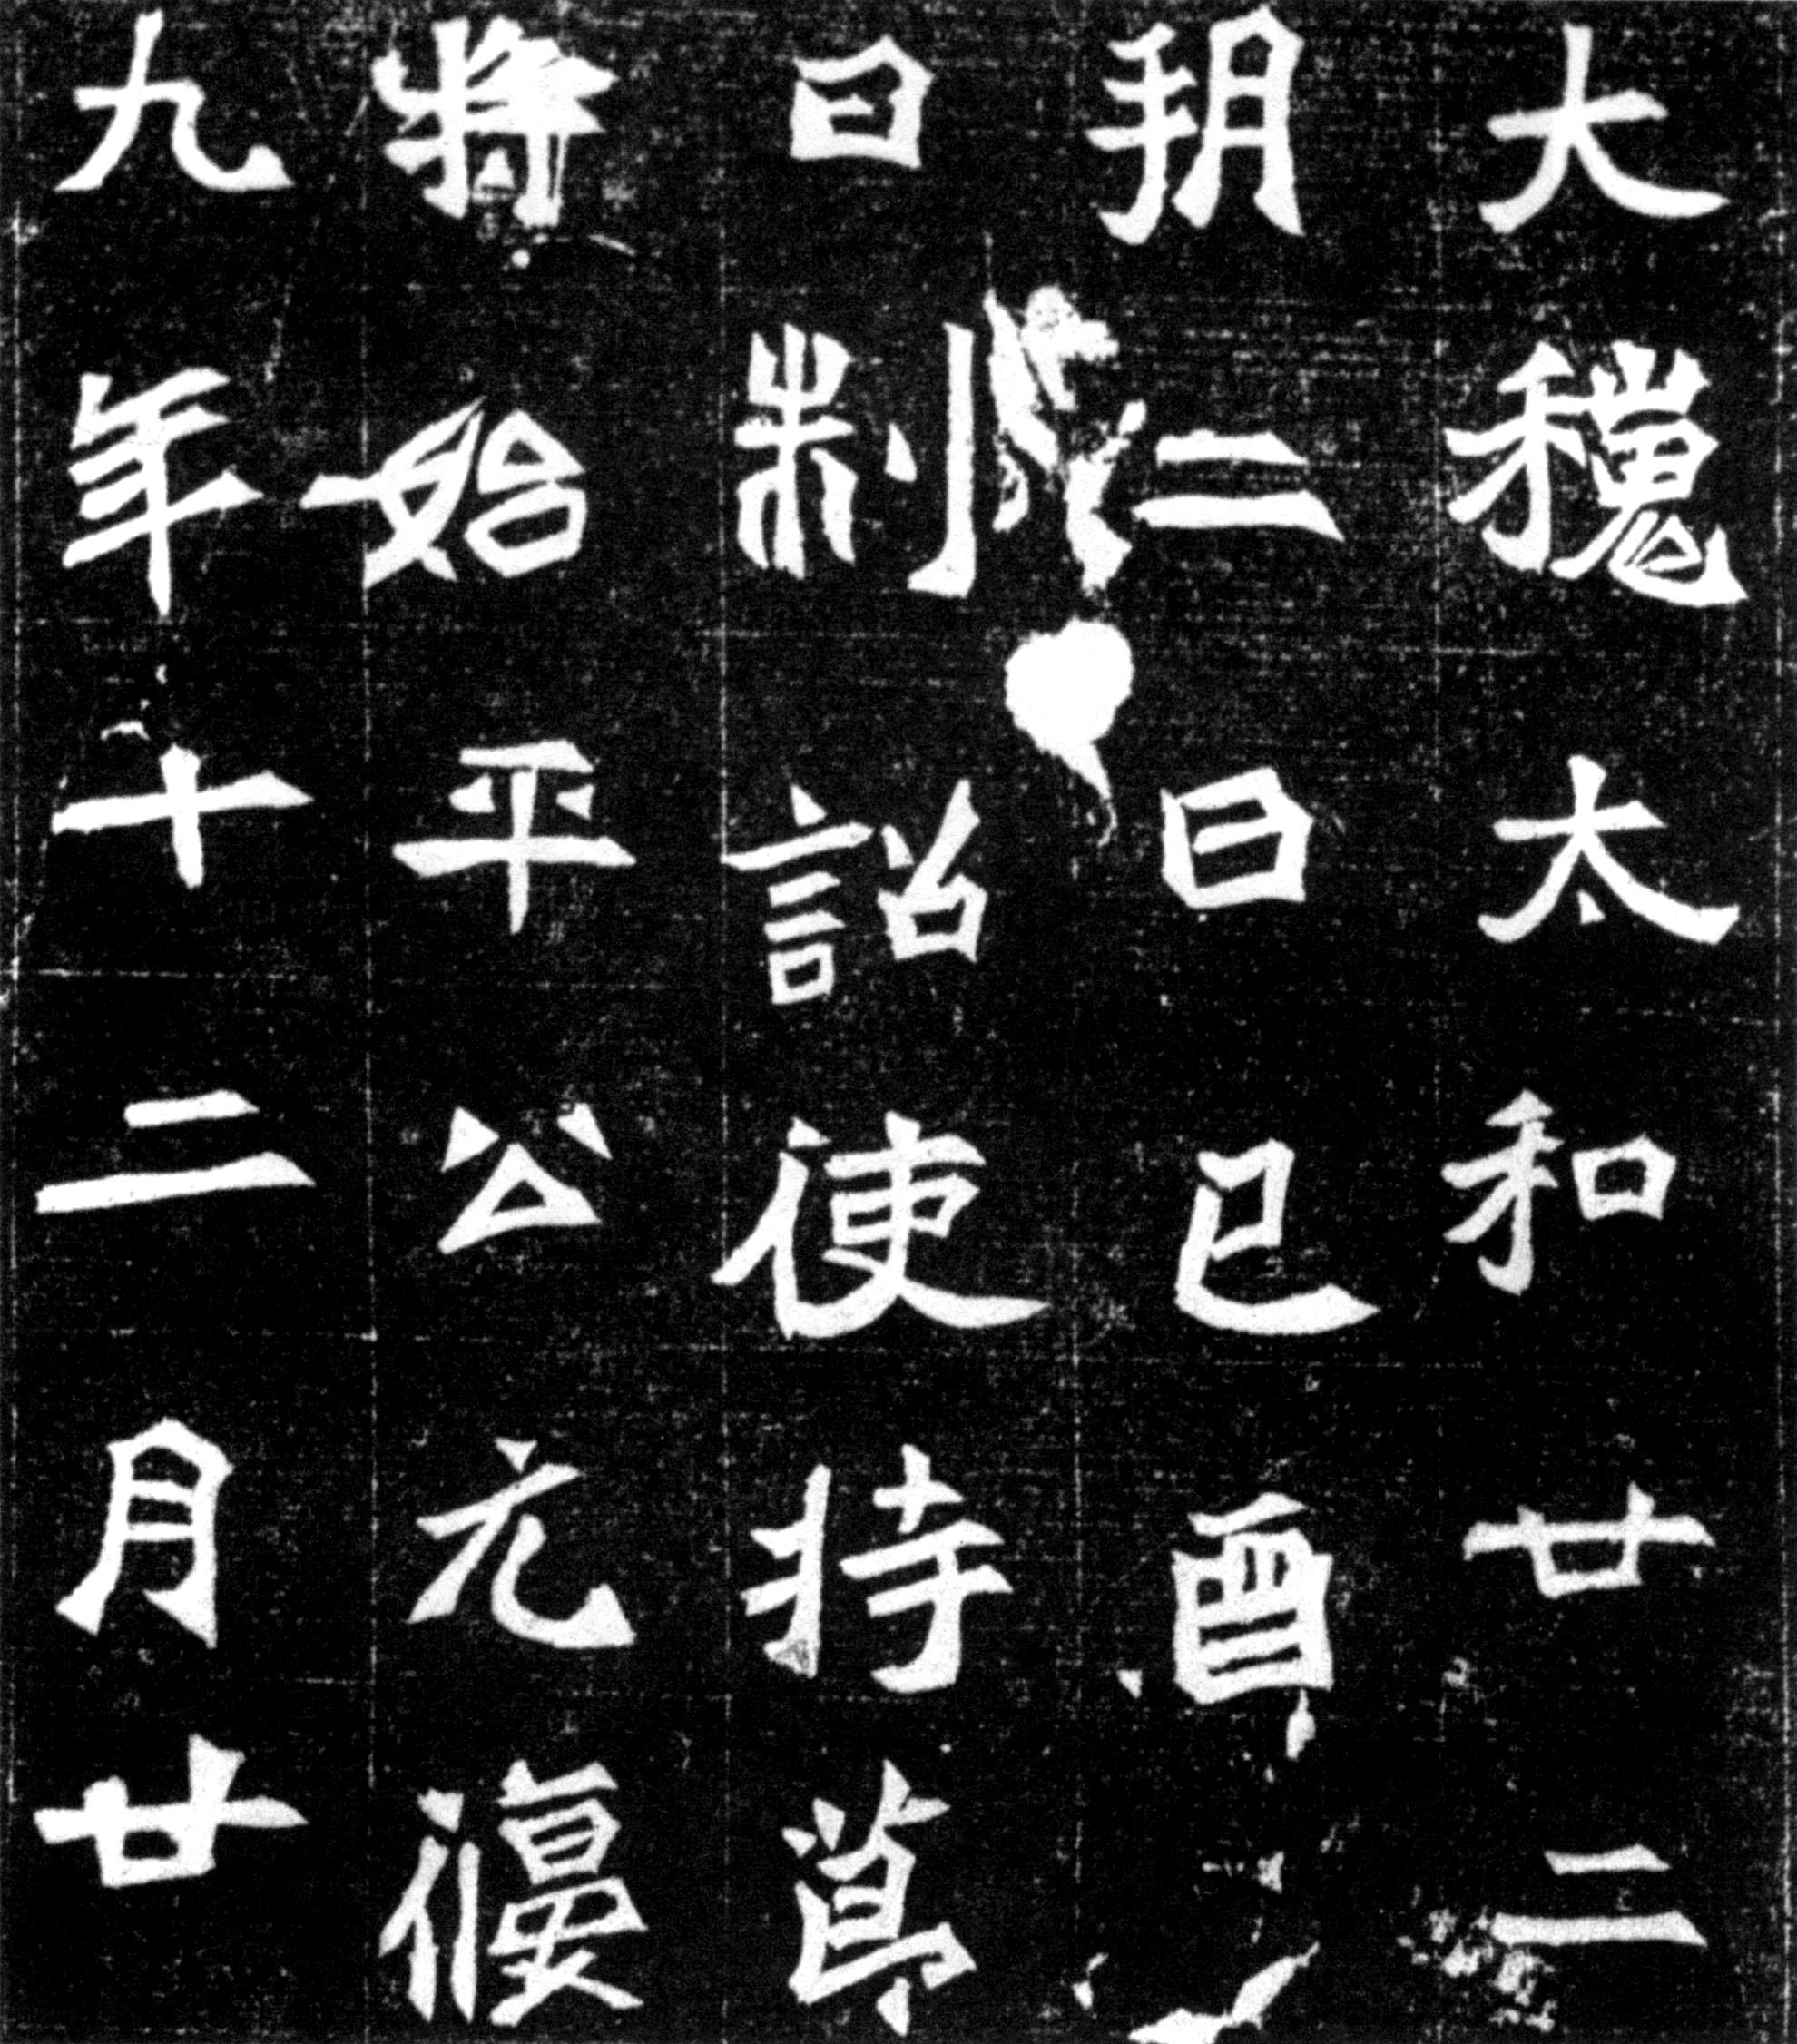 大魏太和廿二
朔二日己酉
曰制詔使持莭
將始平公元偃
九年十二月廿